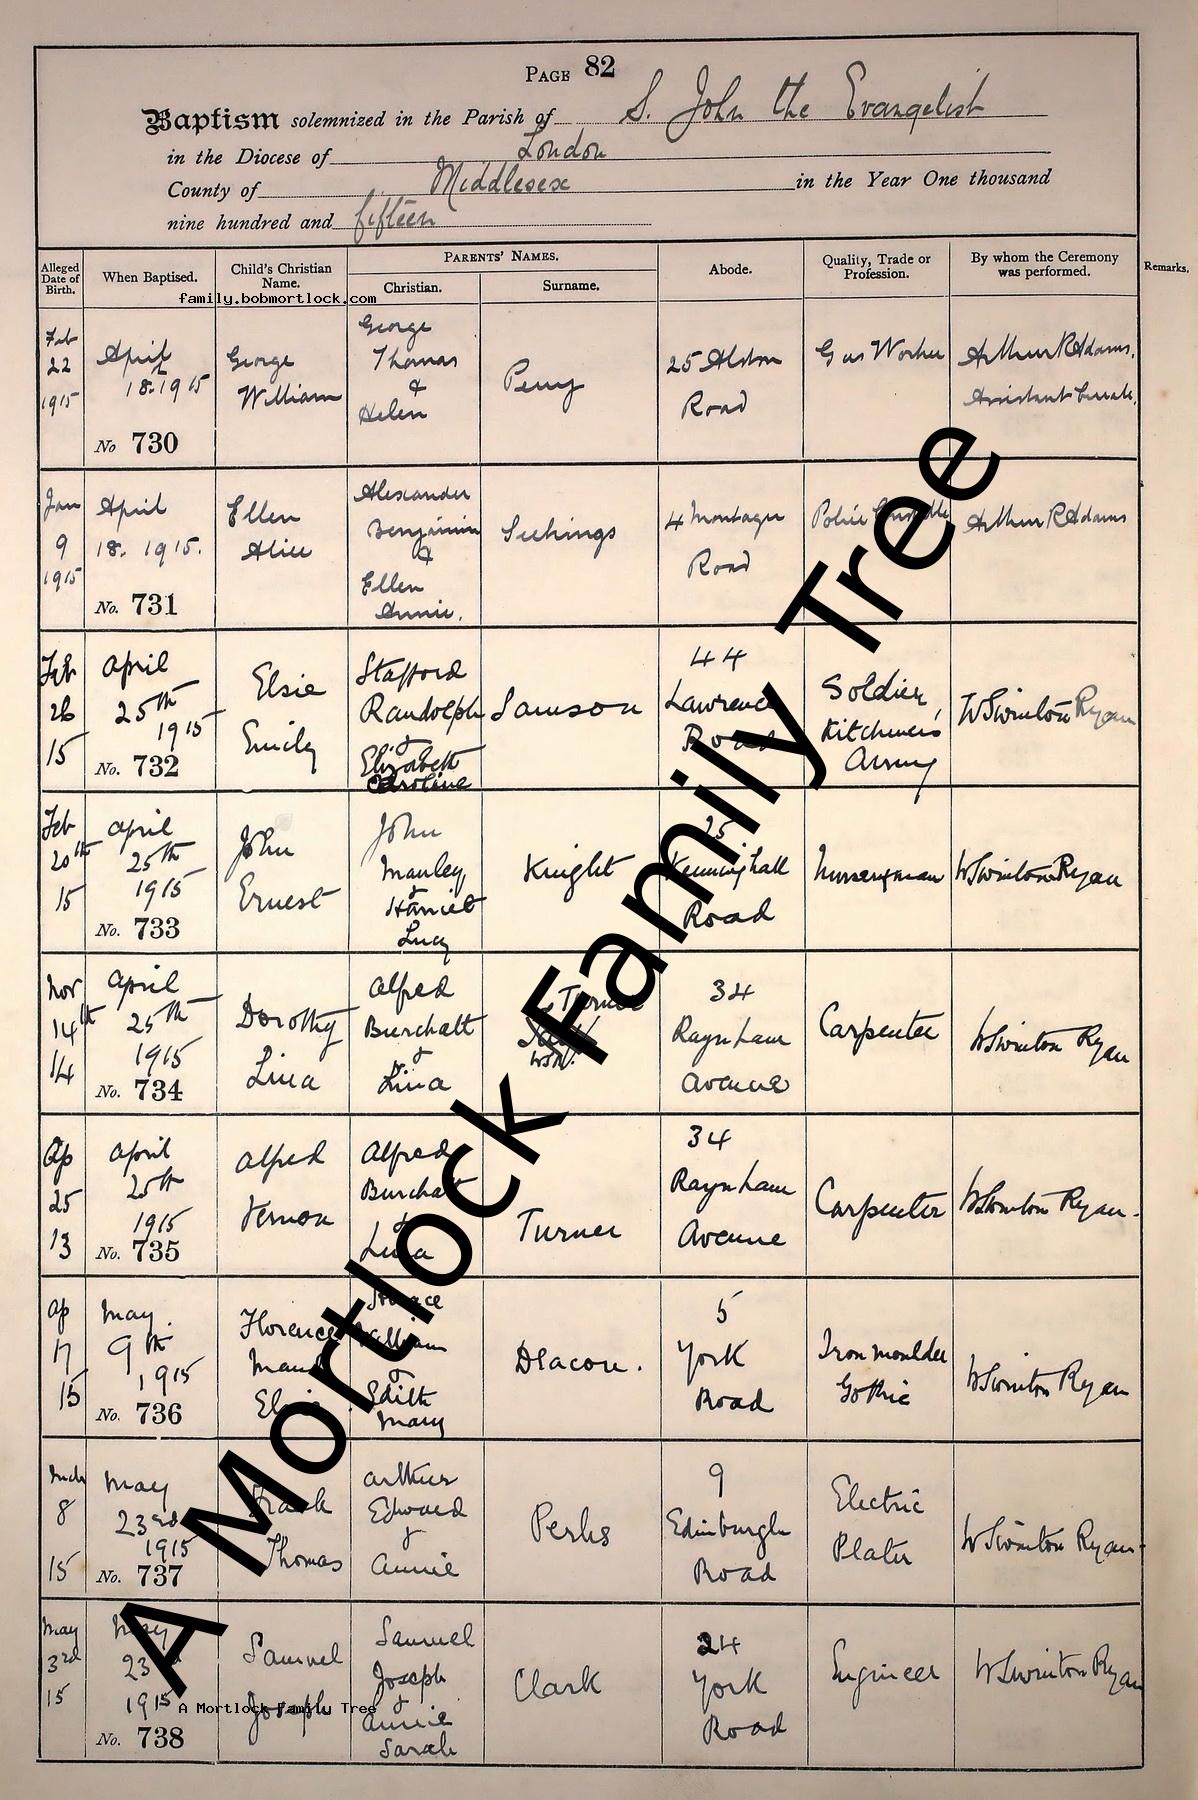 PAGE 82
Baptism solemnized in the Parish of S. John the Evangelist
in the Diocese of London
County of Middlesex in the Year One thousand
nine hundred and fifteen
Alleged Date of Birth.
When Baptised.
Child's Christian Name.
PARENTS' NAMES.
Christian.
Surname.
Abode.
Quality, Trade or Profession.
By whom the Ceremony was performed.
Remarks.
family.bobmortlock.com
Feb 22 1915
April 18. 1915
No 730
George William
George Thomas & Helen
Perry
25 Alston Road
Gas Worker
Arthur R Adams. Assistant Curate.
Jan 9 1915
April 18. 1915.
No. 731
Ellen Alice
Alexander Benjamin & Ellen Annie.
4 Montague Road
Police Constable
Arthur R Adams
Feb 26 15
April 25th 1915
No. 732
Elsie Emily
Stafford Randolph & Elizabeth Caroline
Samson
44 Lawrence Road
Soldier, Kitchener's Army
W Swinton Ryan
Feb 20th 15
April 25th 1915
No. 733
John Ernest
John Manley & Harriet Lucy
Knight
25 Kenninghall Road
Nurseryman
W Swinton Ryan
Nov 14th 14
April 25th 1915
No. 734
Dorothy Lina
Alfred Burchatt & Lina
Turner
W.S.R.
34 Raynham Avenue
Carpenter
W Swinton Ryan
Ap 25 13
April 25th 1915
No. 735
Alfred Vernon
Alfred Burchatt & Lina
Turner
34 Raynham Avenue
Carpenter
W Swinton Ryan.
Ap 17 15
May. 9th 1915
No. 736
Florence Maud
Horace William & Edith Mary
Deacon.
5 York Road
Iron Moulder Gothic
W Swinton Ryan
Mch 8 15
May 23rd 1915
No. 737
Frank Thomas
Arthur Edward & Annie
Perks
9 Edinburgh Road
Electric Plater
W Swinton Ryan
May 3rd 15
May 23rd 1915
No. 738
Samuel Joseph
Samuel Joseph & Annie Sarah
Clark
24 York Road
Engineer
W Swinton Ryan
A Mortlock Family Tree
A Mortlock Family Tree